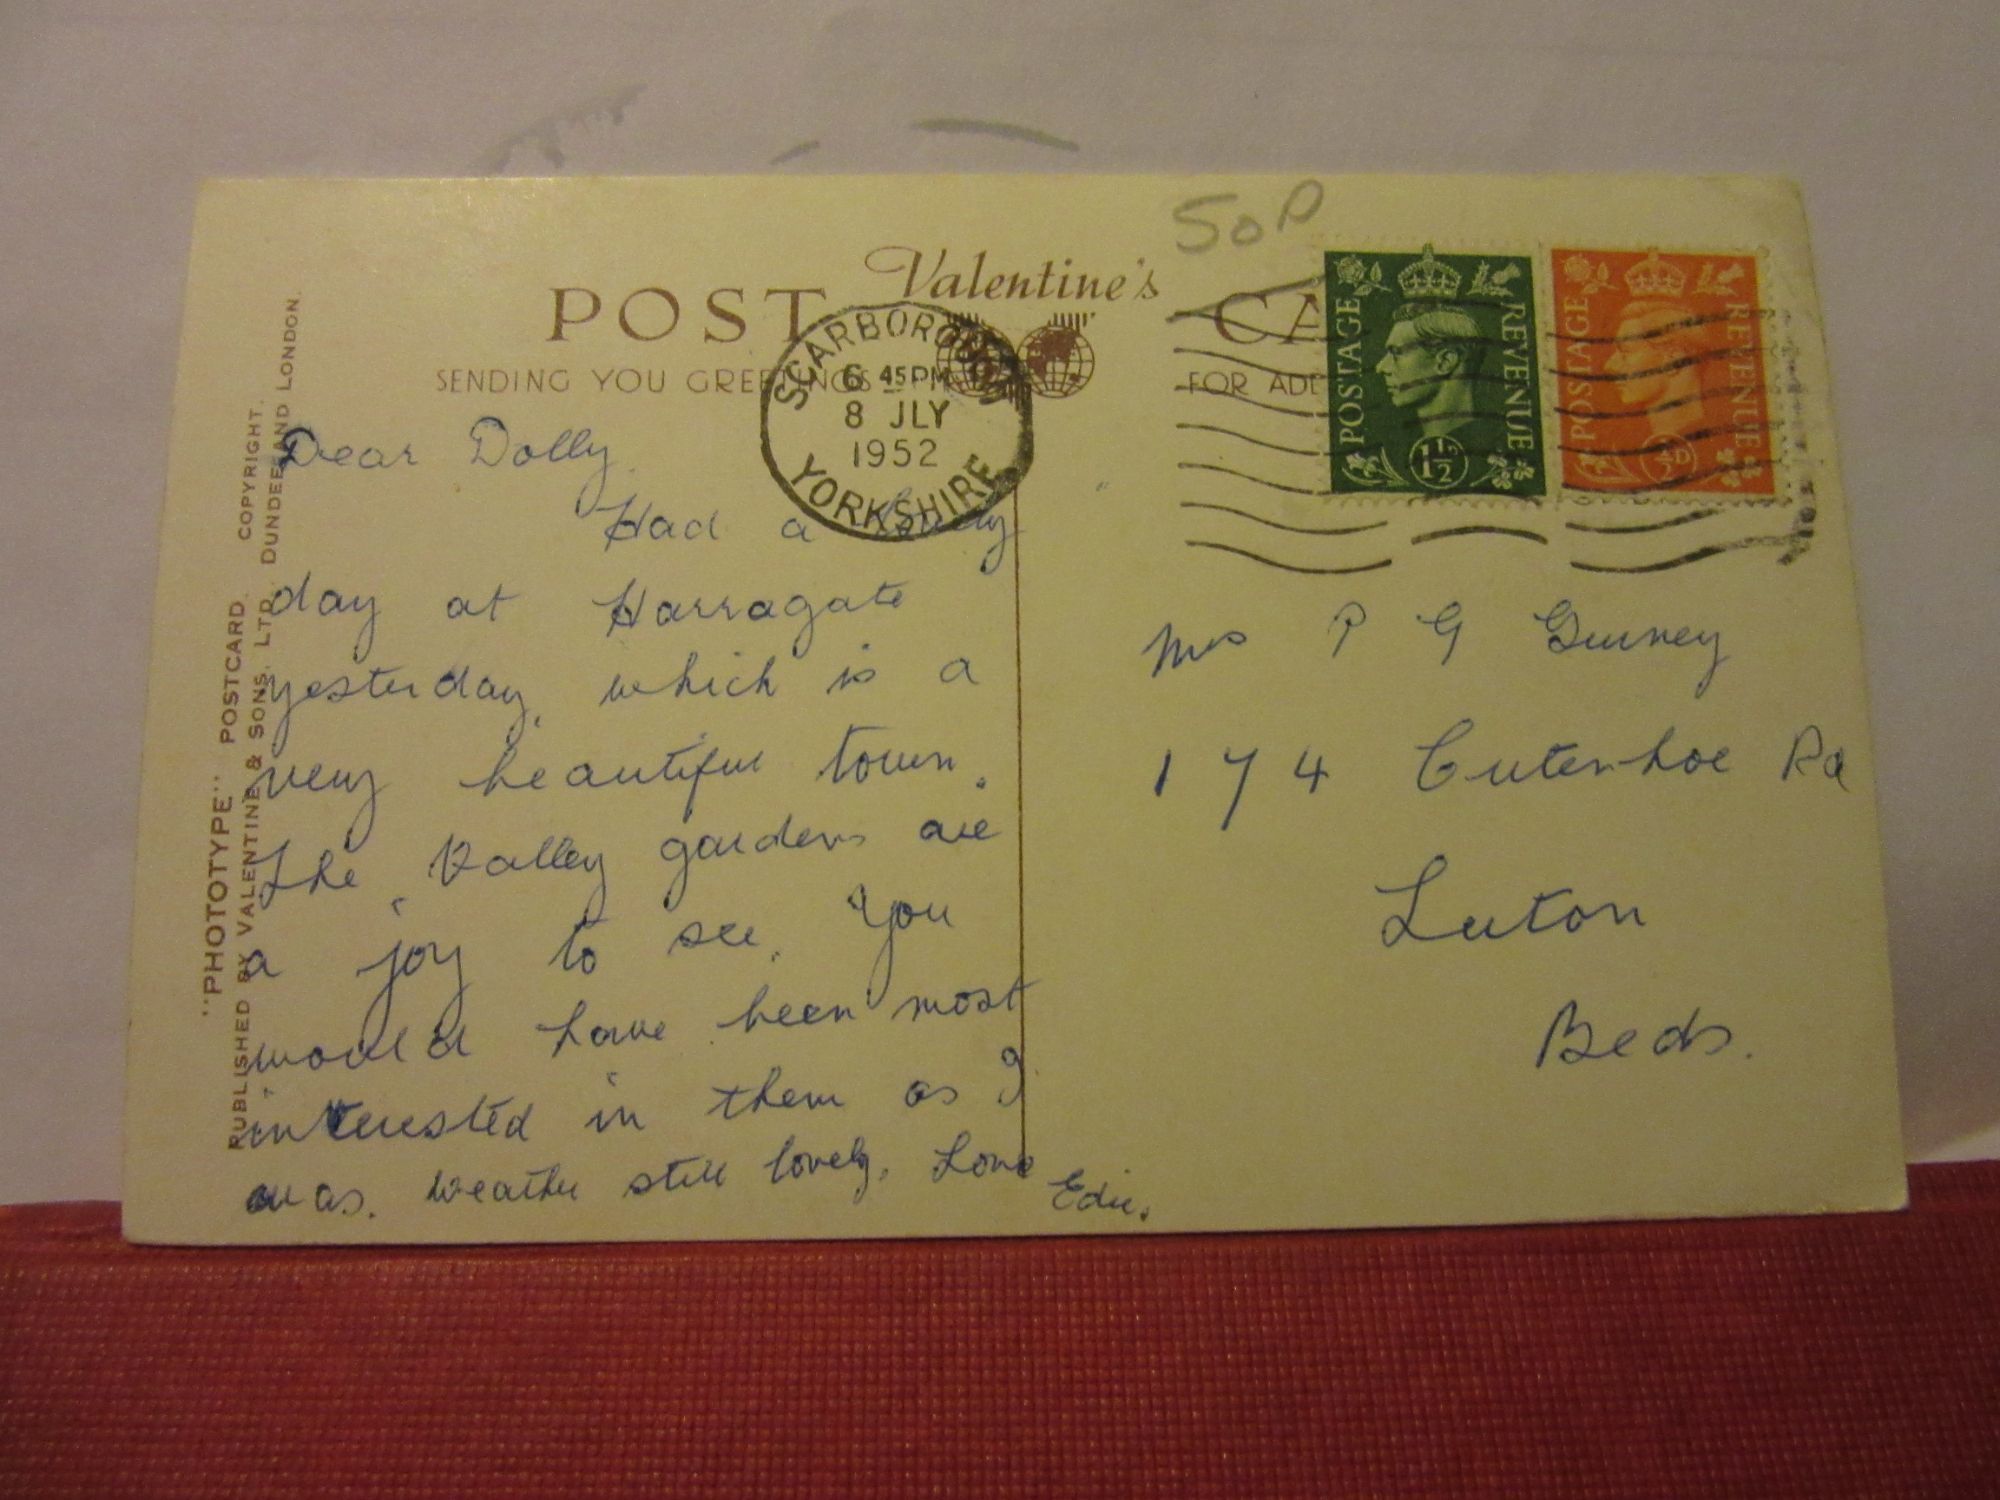 50P
Valentine's
POST CA
SENDING YOU GREETINGS
FOR ADD
SCARBOROUGH
6 45 PM
8 JLY
1952
YORKSHIRE
POSTAGE REVENUE
1½D
POSTAGE REVENUE
½D
Dear Dolly.
Had a lovely
day at Harragate
yesterday, which is a
very beautiful town.
The Valley gardens are
a joy to see. You
would have been most
interested in them as I
was. Weather still lovely. Love
Edie.
Mrs P G Gurney
174 Cutenhoe Rd
Luton
Beds.
"PHOTOTYPE" POSTCARD. COPYRIGHT.
PUBLISHED BY VALENTINE & SONS, LTD. DUNDEE AND LONDON.